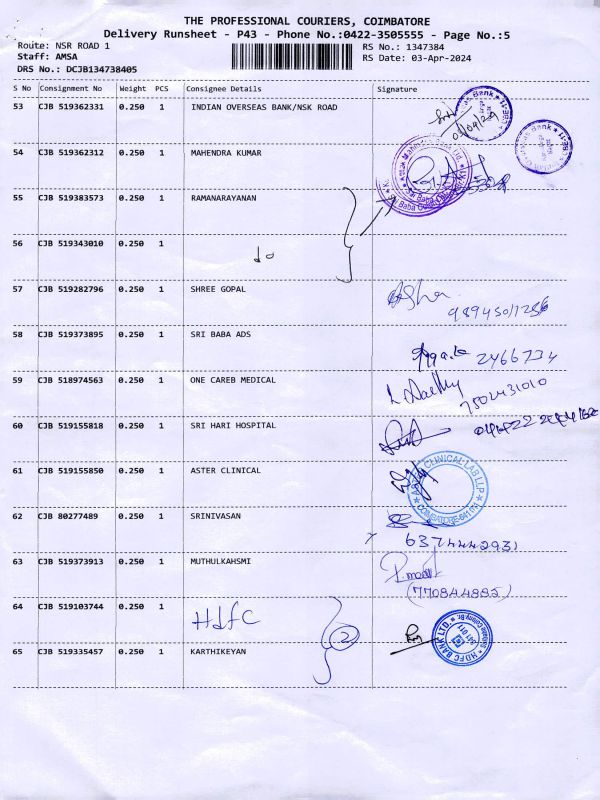 THE PROFESSIONAL COURIERS, COIMBATORE
Delivery Runsheet - P43 - Phone No.:0422-3505555 - Page No.:5
Route: NSR ROAD 1 RS No.: 1347384
Staff: AMSA RS Date: 03-Apr-2024
DRS No.: DCJB134738405
S No Consignment No Weight PCS Consignee Details Signature
53 CJB 519362331 0.250 1 INDIAN OVERSEAS BANK/NSK ROAD
54 CJB 519362312 0.250 1 MAHENDRA KUMAR
55 CJB 519383573 0.250 1 RAMANARAYANAN
56 CJB 519343010 0.250 1 do
57 CJB 519282796 0.250 1 SHREE GOPAL
58 CJB 519373895 0.250 1 SRI BABA ADS 2466734
59 CJB 518974563 0.250 1 ONE CAREB MEDICAL 7502431010
60 CJB 519155818 0.250 1 SRI HARI HOSPITAL
61 CJB 519155850 0.250 1 ASTER CLINICAL CLINICAL LAB LLP
62 CJB 80277489 0.250 1 SRINIVASAN 6374442931
63 CJB 519373913 0.250 1 MUTHULKAHSMI (770844885)
64 CJB 519103744 0.250 1 Hdfc 2 HDFC BANK LTD.
65 CJB 519335457 0.250 1 KARTHIKEYAN